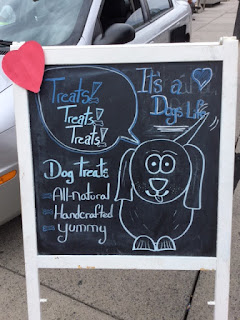 Treats!
Treats!
Treats!
It's a
Dogs Life
Dog treats
- All-natural
- Handcrafted
- yummy